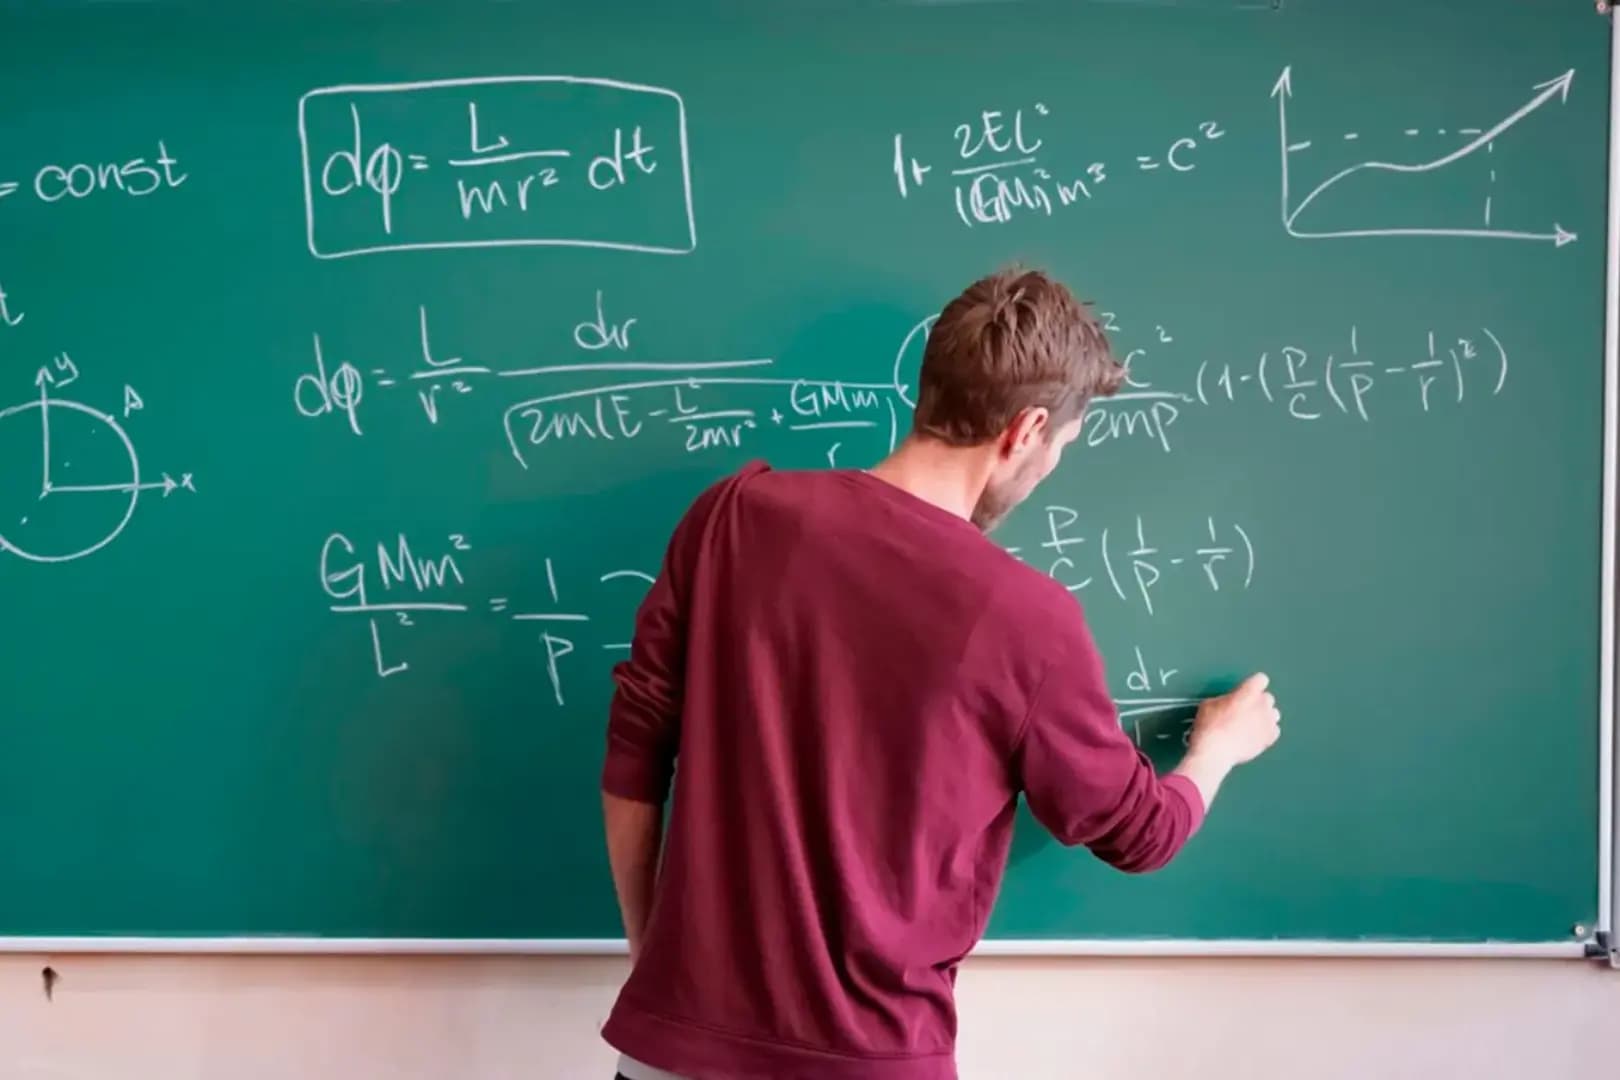 = const
dφ = L/mr² dt
1+ 2EL²/(GM)²m³ = c²
t
y
A
x
dφ = L/r² dr/√2m(E - L²/2mr² + GMm/r)
c²/2mp (1-(p/c(1/p - 1/r)²)
GMm²/L² = 1/p
= p/c (1/p - 1/r)
dr/√1 -